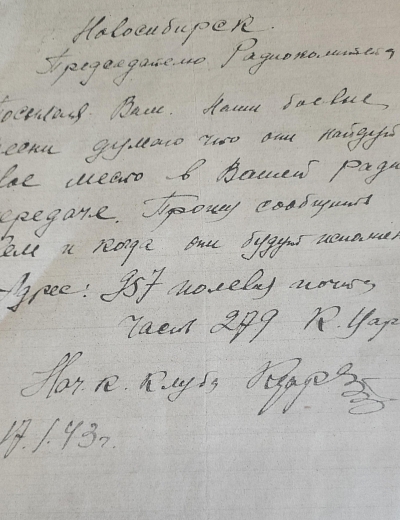 Новосибирск.
Председателю Радиокомитета
Посылая Вам. Наши боевые
песни думаю что они найдут
свое место в Вашей Ради
передаче. Прошу сообщить
Кем и когда они будут исполнен
Адрес: 957 полевая почта
часть 279 К. Цар
Нач. к. клуба
17.1.43г.